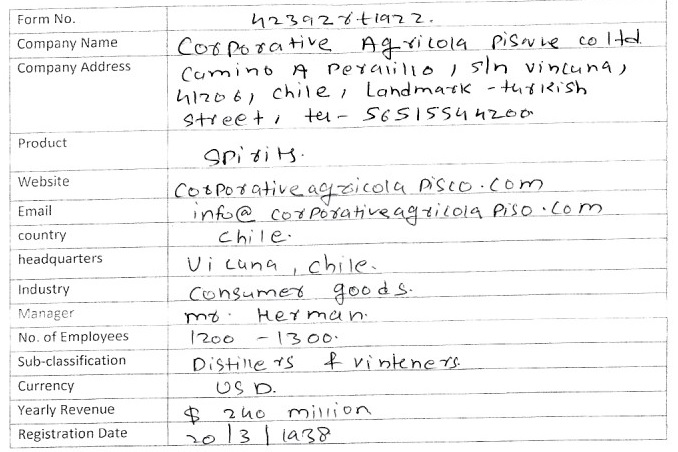 Form No. 423928t1922.
Company Name Corporative Agricola Pisnue co ltd.
Company Address Camino A Peralillo, s/n vincuna,
41206, chile, Landmark - turkish
street, tel - 56515544200
Product Spirits.
Website Corporativeagricola Pisco.com
Email info@ corporativeagricola Piso.com
country Chile.
headquarters Vicuna, chile.
Industry Consumer goods.
Manager mr. Herman.
No. of Employees 1200 - 1300.
Sub-classification Distillers & vinteners.
Currency USD.
Yearly Revenue $ 240 million
Registration Date 20/3/1938